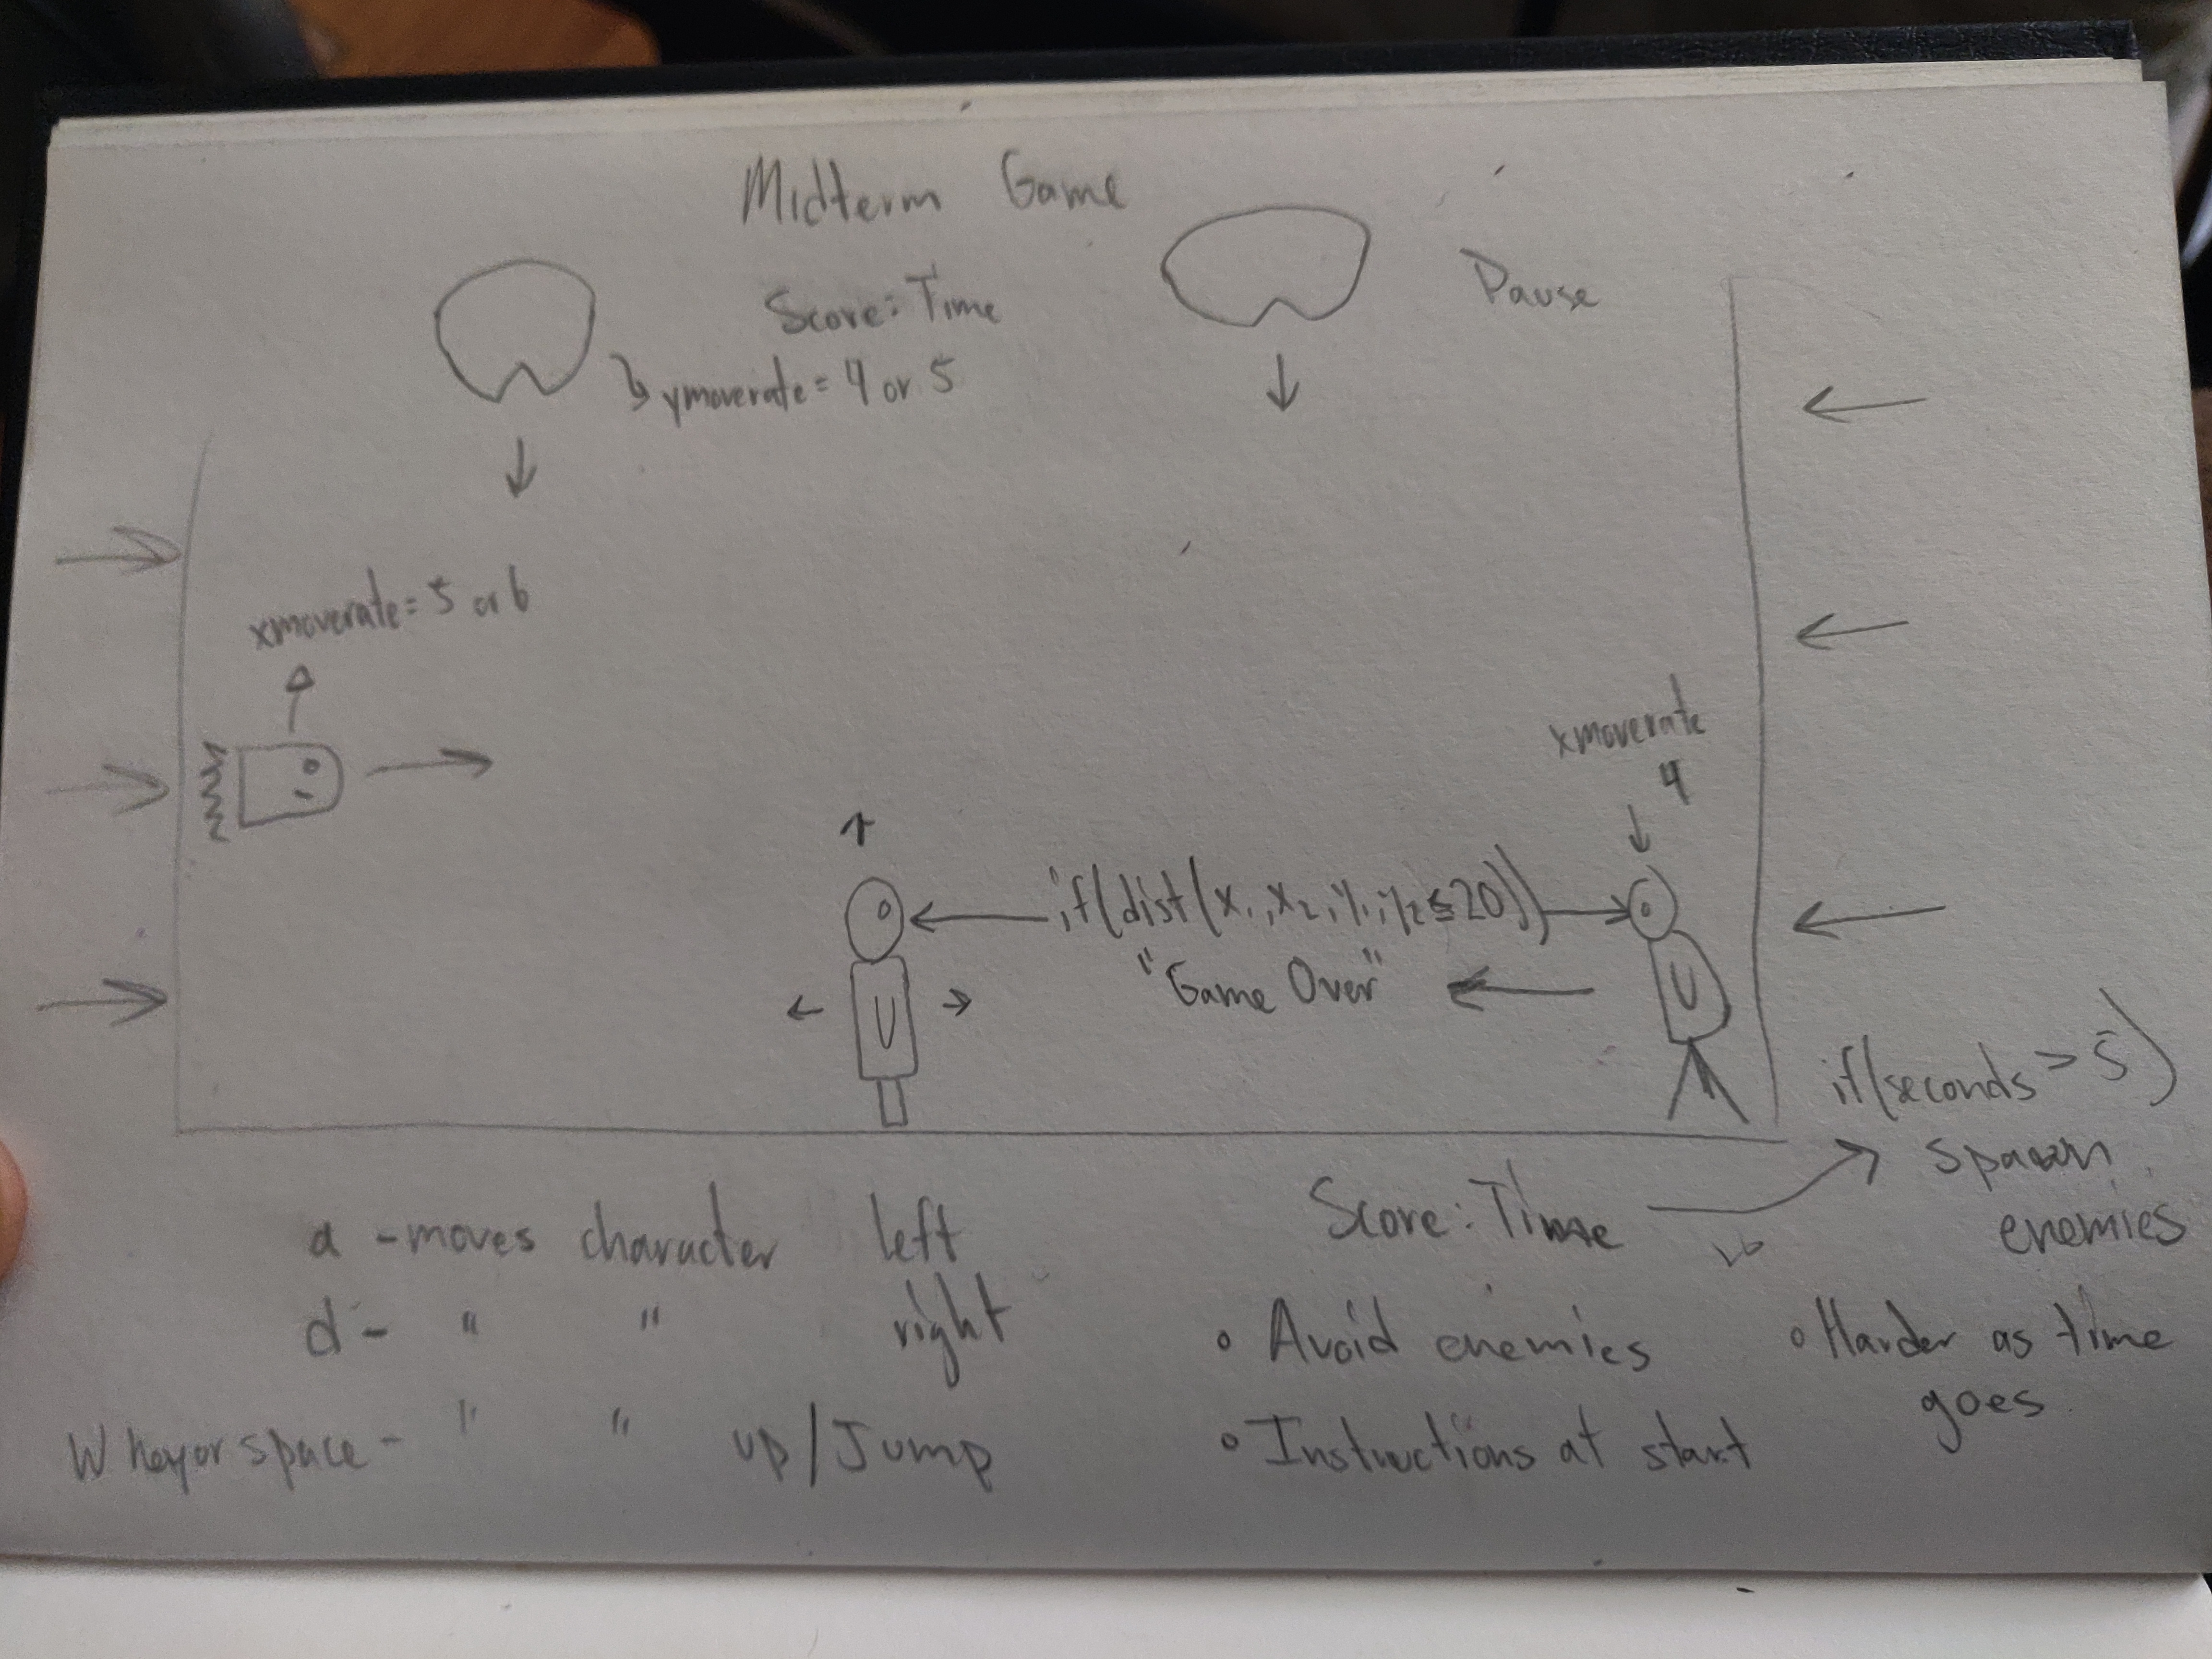 Midterm Game
Score: Time
Pause
ymoverate = 4 or 5
xmoverate = 5 or 6
xmoverate
4
if(dist(x1,x2,y1,y2≤20))
"Game Over"
U
U
if(seconds > 5)
spawn
enemies
Score: Time
a - moves character left
d - " " right
W key or space - " " up/Jump
• Avoid enemies
• Instructions at start
• Harder as time
goes